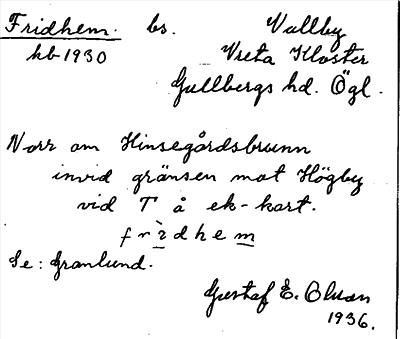 Fridhem. bs. Vallby
hb 1930 Vreta Kloster
Gullbergs hd. Ögl.
Norr om Hinsegårdsbrunn
invid gränsen mot Högby
vid T å ek-kart.
fridhem
Se: Granlund.
Gustaf E. Olsson
1936.